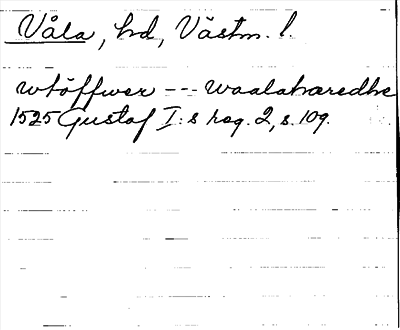 Våla, hd, Västm. l.
wtöffwer --- waalahæredhe
1525 Gustaf I:s reg. 2, s. 109.